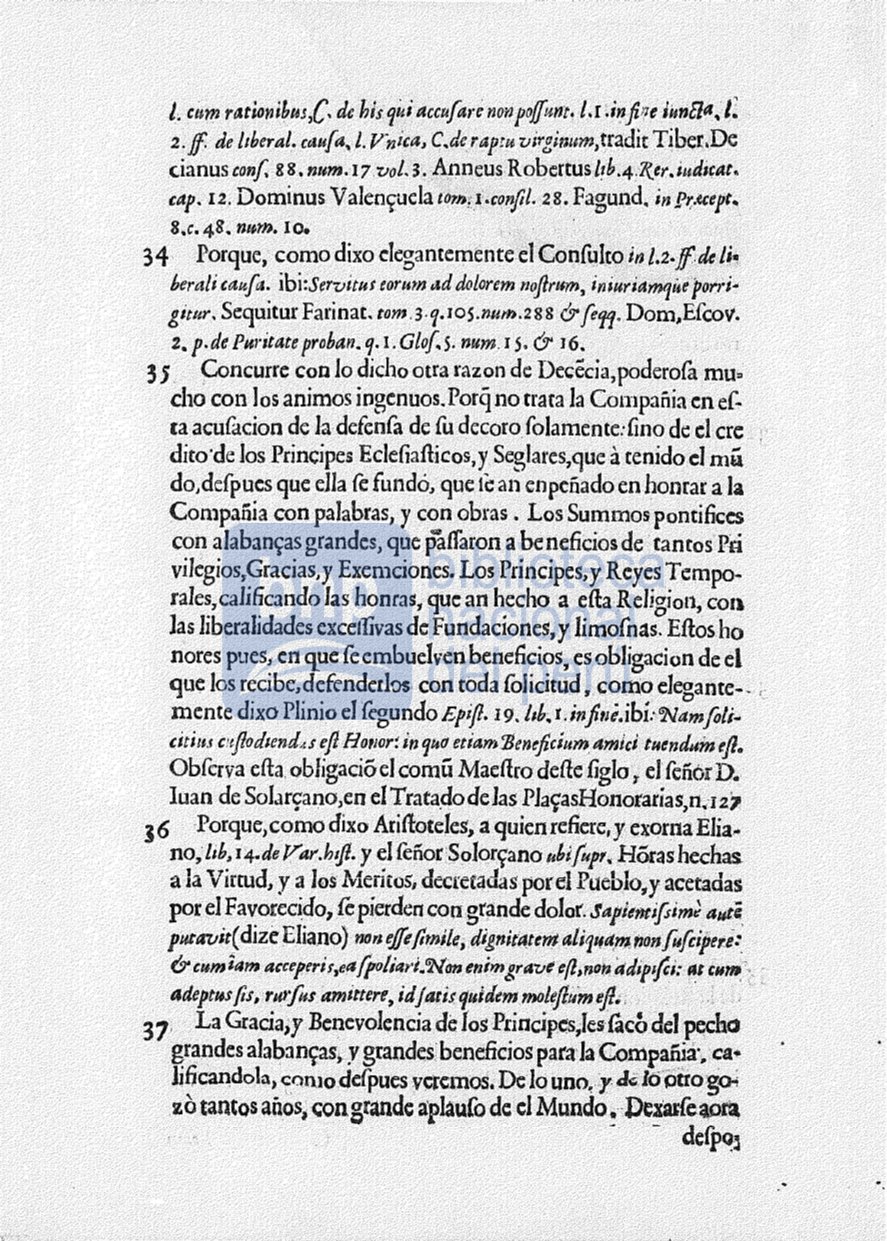 l. cum rationibus, C. de his qui accuſare non poſſunt. l.1. in fine iuncta, l.
2. ff. de liberal. cauſa, l. Vnica, C. de raptu virginum, tradit Tiber. De
cianus conſ. 88. num. 17 vol. 3. Anneus Robertus lib. 4 Rer. iudicat.
cap. 12. Dominus Valençuela tom. 1. conſil. 28. Fagund. in Præcept.
8. c. 48. num. 10.
34 Porque, como dixo elegantemente el Conſulto in l.2. ff de li-
berali cauſa. ibi: Servitus eorum ad dolorem noſtrum, iniuriamque porri-
gitur. Sequitur Farinat. tom. 3. q. 105. num. 288 & ſeqq. Dom, Eſcov.
2. p. de Puritate proban. q. 1. Gloſ. 5. num. 15. & 16.
35 Concurre con lo dicho otra razon de Decēcia, poderoſa mu-
cho con los animos ingenuos. Porq̄ no trata la Compañia en eſ-
ta acuſacion de la defenſa de ſu decoro ſolamente: ſino de el cre
dito de los Principes Ecleſiaſticos, y Seglares, que à tenido el mū
do, deſpues que ella ſe fundó, que ſe an enpeñado en honrar a la
Compañia con palabras, y con obras. Los Summos pontifices
con alabanças grandes, que paſſaron a beneficios de tantos Pri
vilegios, Gracias, y Exemciones. Los Principes, y Reyes Tempo-
rales, calificando las honras, que an hecho a eſta Religion, con
las liberalidades exceſſivas de Fundaciones, y limoſnas. Eſtos ho
nores pues, en que ſe embuelven beneficios, es obligacion de el
que los recibe, defenderlos con toda ſolicitud, como elegante-
mente dixo Plinio el ſegundo Epiſt. 19. lib. 1. in fine. ibi: Nam ſoli-
citius cuſtodiendus eſt Honor: in quo etiam Beneficium amici tuendum eſt.
Obſerva eſta obligaciō el comū Maeſtro deſte ſiglo, el ſeñor D.
Iuan de Solarçano, en el Tratado de las Plaças Honorarias, n. 127
36 Porque, como dixo Ariſtoteles, a quien refiere, y exorna Elia-
no, lib, 14. de Var. hiſt. y el ſeñor Solorçano ubi ſupr. Hōras hechas
a la Virtud, y a los Meritos, decretadas por el Pueblo, y acetadas
por el Favorecido, ſe pierden con grande dolor. Sapientiſsimè autē
putavit (dize Eliano) non eſſe ſimile, dignitatem aliquam non ſuſcipere:
& cum iam acceperis, ea ſpoliari. Non enim grave eſt, non adipiſci: at cum
adeptus ſis, rurſus amittere, id ſatis quidem moleſtum eſt.
37 La Gracia, y Benevolencia de los Principes, les ſacó del pecho
grandes alabanças, y grandes beneficios para la Compañia, ca-
lificandola, como deſpues veremos. De lo uno, y de lo otro go-
zò tantos años, con grande aplauſo de el Mundo. Dexarſe aora
deſpo;
biblioteca
nacional
del perú